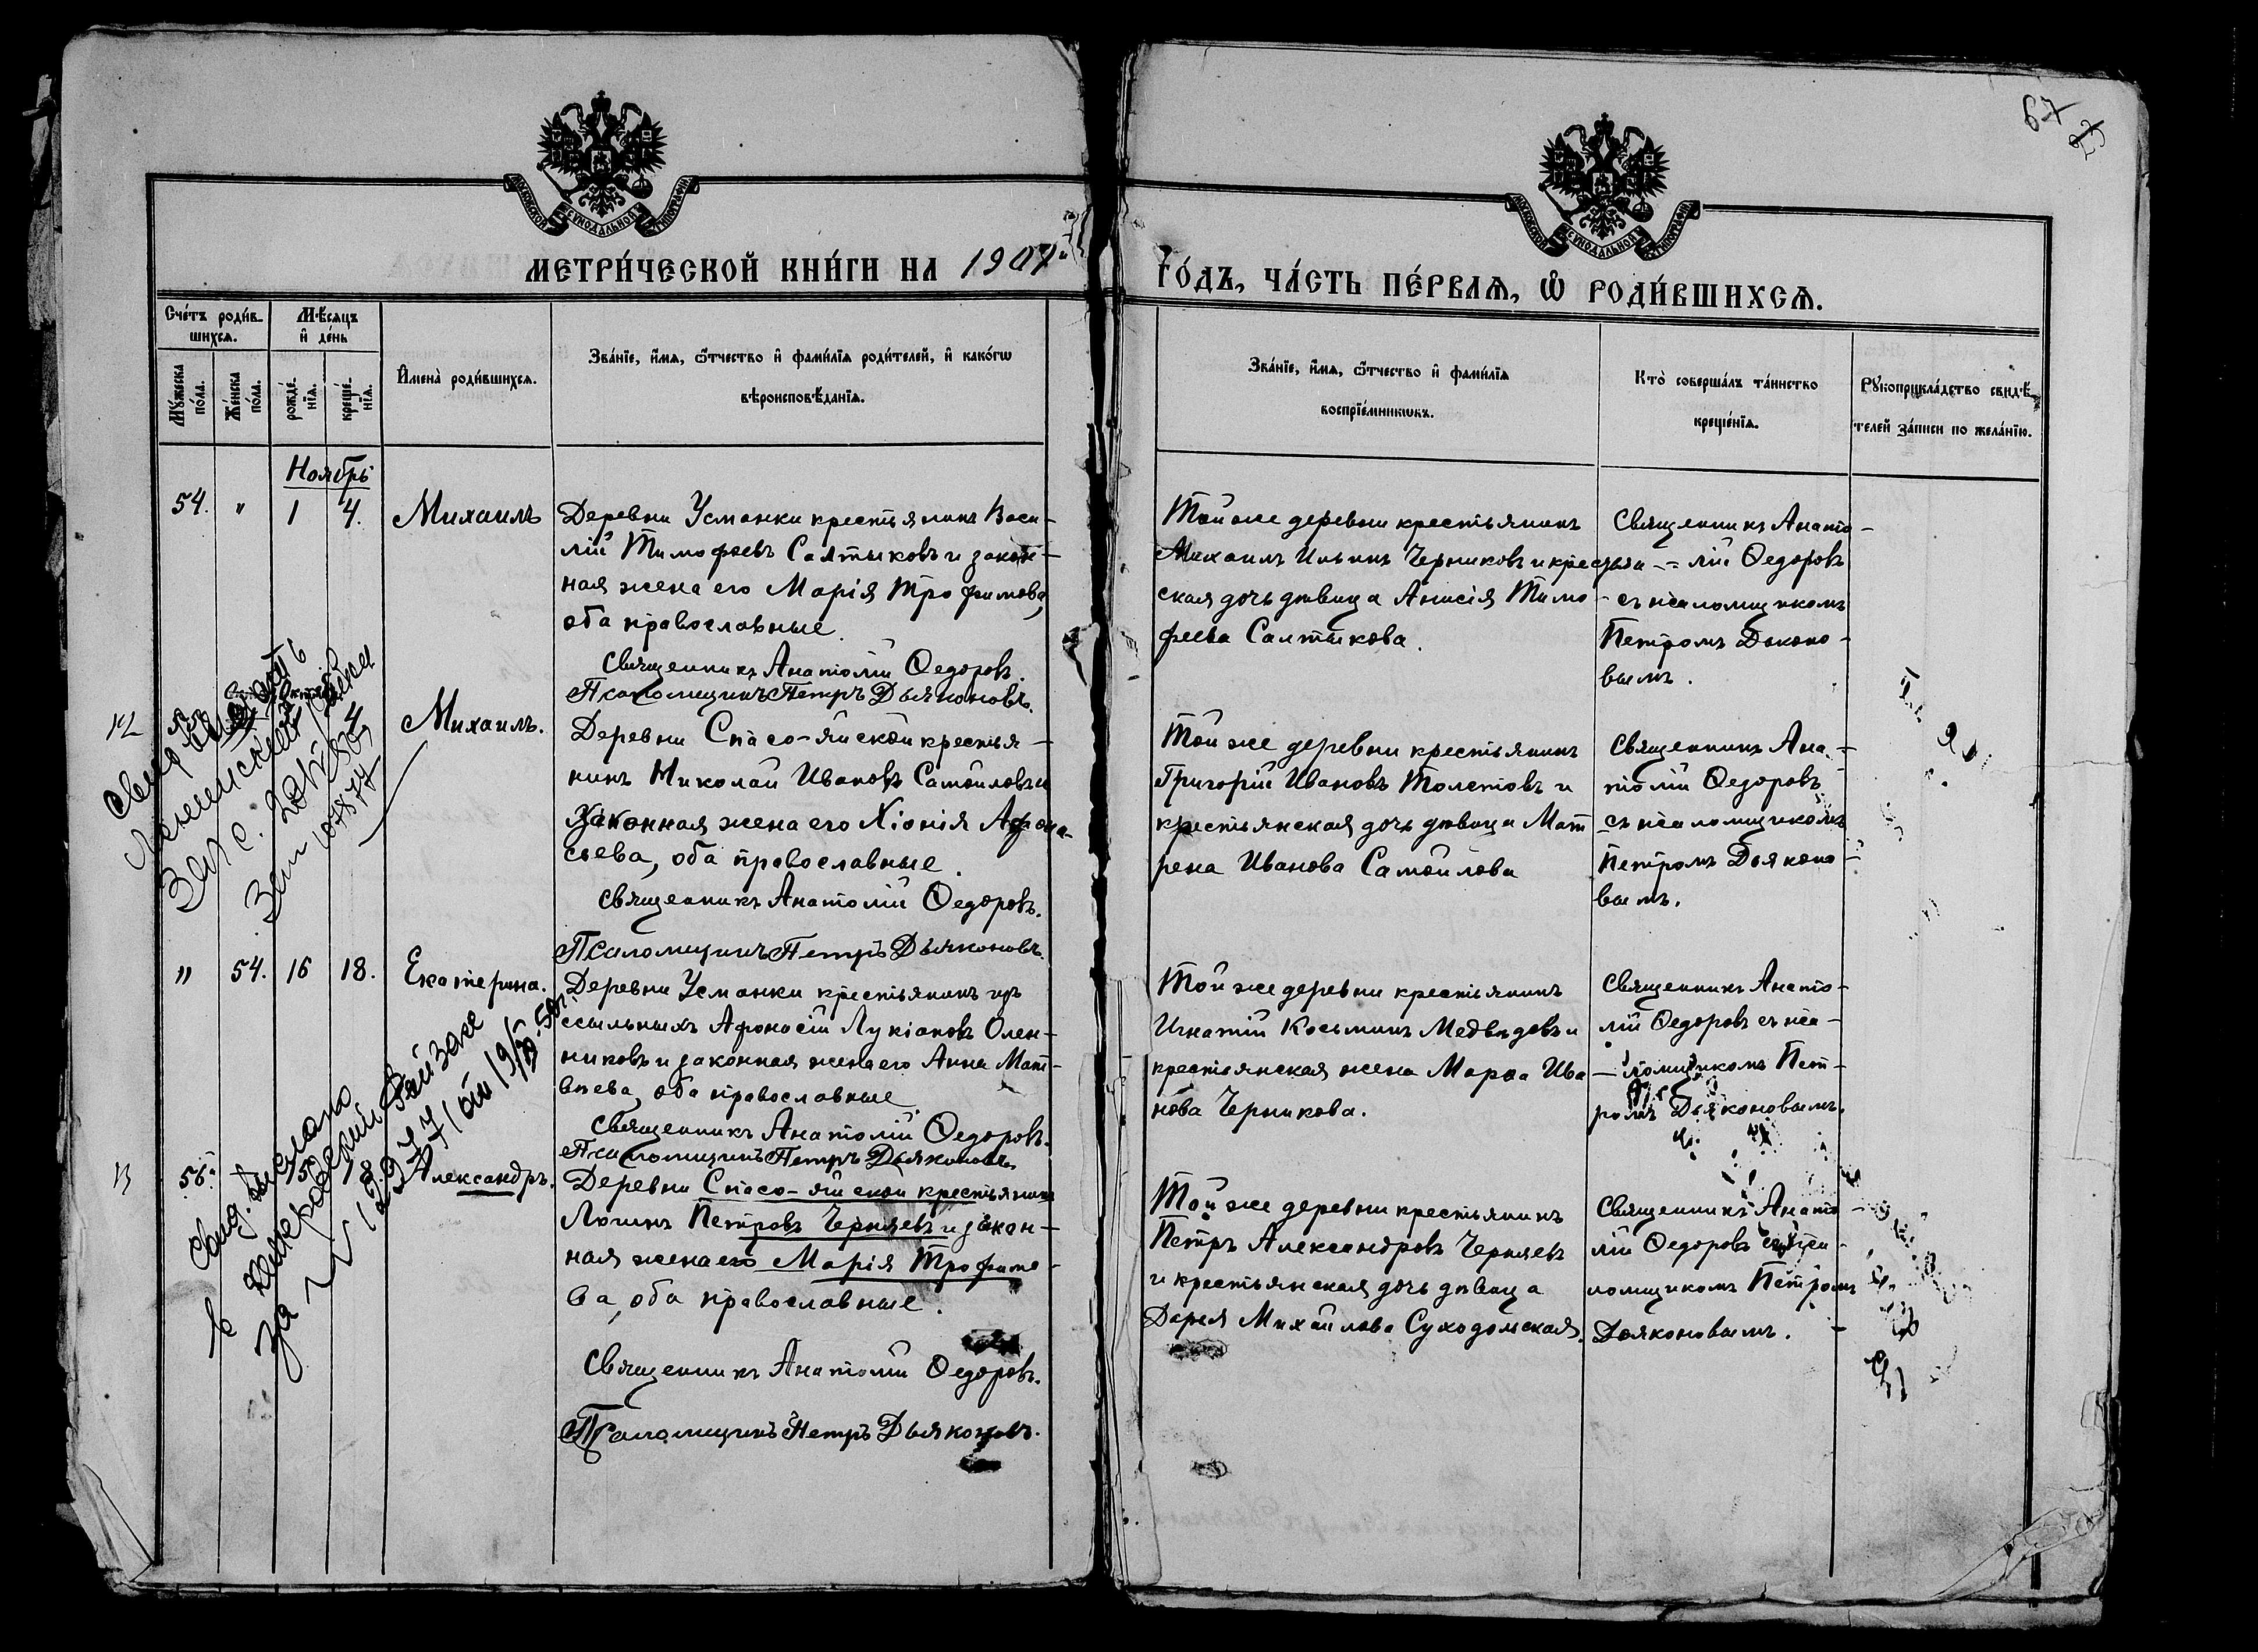 67
23
МОСКОВСКОЙ СѴНОДАЛЬНОЙ ТИПОГРАФІИ
МОСКОВСКОЙ СѴНОДАЛЬНОЙ ТИПОГРАФІИ
МЕТРИ́ЧЕСКОЙ КНИ́ГИ НА 1907й
ГО́ДЪ, ЧА́СТЬ ПЕ́РВАѦ, Ѡ҆ РОДИ́ВШИХСѦ.
Сче́тъ роди́в-
шихсѧ.
Мѣ́сяцъ
и҆ де́нь
Му́жеска по́ла.
Же́нска по́ла.
рожде́-нїѧ.
креще́-нїѧ.
И҆мена̀ роди́вшихсѧ.
Зва́нїе, и҆́мѧ, ѻ҆́тчество и҆ фами́лїѧ роди́телей, и҆ како́гѡ
вѣроисповѣ́данїѧ.
Зва́нїе, и҆́мѧ, ѻ҆́тчество и҆ фами́лїѧ
воспрїе́мникѡвъ.
Кто̀ соверша́лъ та́инство
креще́нїѧ.
Рꙋкоприкла́дство свидѣ́-
телей за́писи по жела́нїю.
Ноябрь
54. " 1 4. Михаилъ
Деревни Усманки крестьянинъ Васи-
лій Тимофеевъ Салтыковъ и закон-
ная жена его Марія Трофимова,
оба православные.
Священникъ Анатолій Ѳедоровъ.
Псаломщикъ Петръ Дьяконовъ.
Той же деревни крестьянинъ
Михаилъ Ильинъ Черниковъ и крестьян-
ская дочь девица Анисія Тимо-
феева Салтыкова.
Священникъ Анато-
лій Ѳедоровъ
съ псаломщикомъ
Петромъ Дьяконо-
вымъ.
12
4
Михаилъ.
Деревни Спасо-Яйской крестья-
нинъ Николай Ивановъ Самойловъ и
законная жена его Хіонія Афона-
сьева, оба православные.
Священникъ Анатолій Ѳедоровъ.
Псаломщикъ Петръ Дьяконовъ.
Той же деревни крестьянинъ
Григорій Ивановъ Толстовъ и
крестьянская дочь девица Мат
рена Иванова Самойлова
Священникъ Ана-
толій Ѳедоровъ
съ псаломщикомъ
Петромъ Дьяконо-
вымъ.
" 54. 16 18. Екатерина.
Деревни Усманки крестьянинъ изъ
ссыльныхъ Афонасій Лукіановъ Олен-
никовъ и законная жена его Анна Мат-
веева, оба православные.
Священникъ Анатолій Ѳедоровъ.
Псаломщикъ Петръ Дьяконовъ.
Той же деревни крестьянинъ
Игнатій Косьминъ Медведовъ и
крестьянская жена Марѳа Ива-
нова Черникова.
Священникъ Анато-
лій Ѳедоровъ съ пса-
ломщикомъ Пет-
ромъ Дьяконовымъ.
13
56. " 15 18. Александръ.
Деревни Спасо-Яйской крестьянинъ
Логинъ Петровъ Черняевъ и закон-
ная жена его Марія Трофимо-
ва, оба православные.
Священникъ Анатолій Ѳедоровъ.
Псаломщикъ Петръ Дьяконовъ.
Той же деревни крестьянинъ
Петръ Александровъ Черняевъ
и крестьянская дочь девица
Дарья Михайлова Суходомская.
Священникъ Анато-
лій Ѳедоровъ съ пса-
ломщикомъ Петромъ
Дьяконовымъ.
свид. выслано
в Кемеровский Райзагс
за N 12977